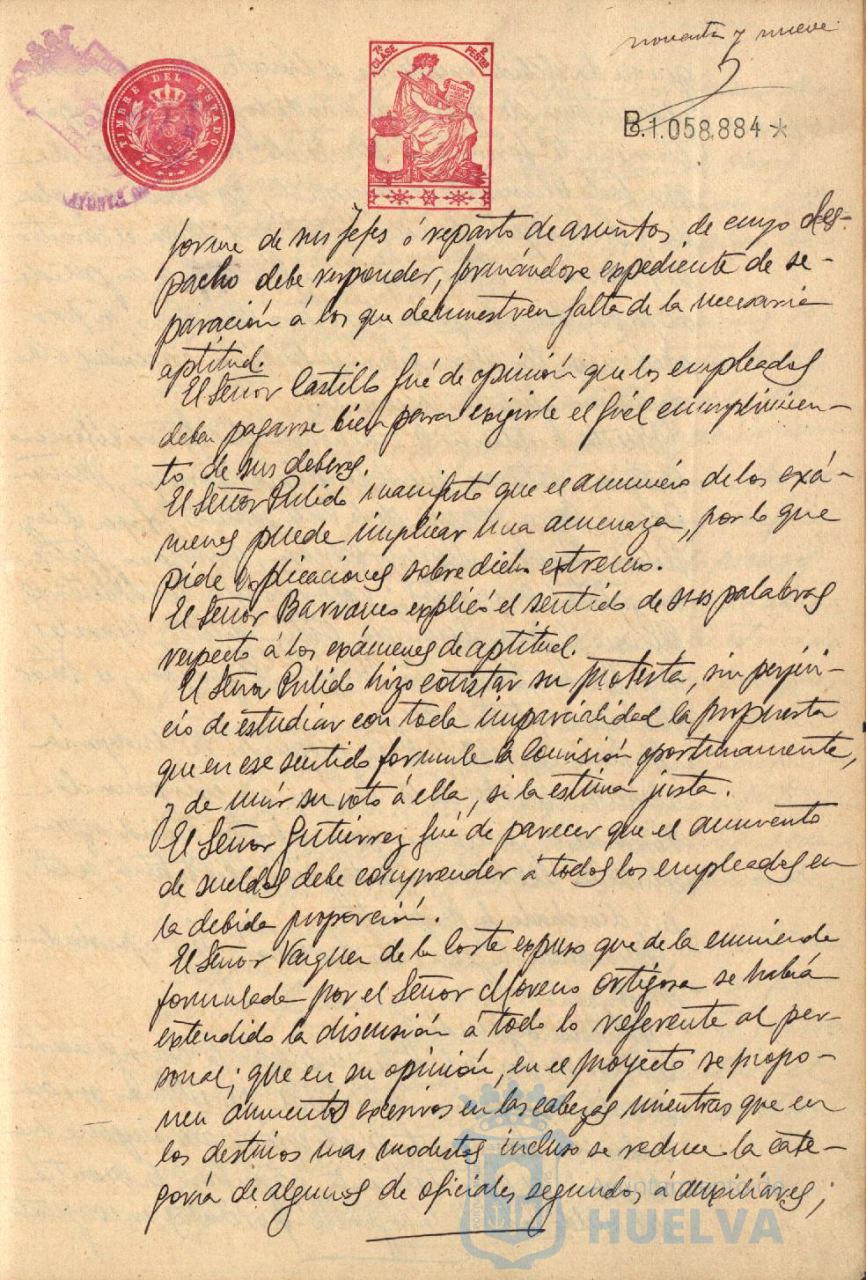 noventa y nueve
7ª CLASE
2 PESTAS
TIMBRE DEL ESTADO
B.1.058,884*
forme de sus Jefes ó reparto de asuntos de cuyo des-
pacho debe responder, formándose expediente de se-
paración á los que demuestren falta de la necesaria
aptitud.
El Señor Castillo fué de opinión que los empleados
deben pagarse bien para exigirle el fiel cumplimien-
to de sus deberes.
El Señor Pulido manifestó que el anuncio de los exá-
menes puede implicar una amenaza, por lo que
pide explicaciones sobre dicho extremo.
El Señor Barranco explicó el sentido de sus palabras
respecto á los exámenes de aptitud.
El Señor Pulido hizo constar su protesta, sin perjui-
cio de estudiar con toda imparcialidad la propuesta
que en ese sentido formule la Comisión oportunamente,
y de unir su voto á ella, si la estima justa.
El Señor Gutiérrez fué de parecer que el aumento
de sueldos debe comprender á todos los empleados en
la debida proporción.
El Señor Vazquez de la Corte expuso que de la enmienda
formulada por el Señor Moreno Ortigosa se había
extendido la discusión á todo lo referente al per-
sonal; que en su opinión, en el proyecto se propo-
nen aumentos excesivos en las cabezas mientras que en
los destinos mas modestos incluso se reduce la cate-
goría de algunos de oficiales segundos á auxiliares;
Ayuntamiento de
HUELVA